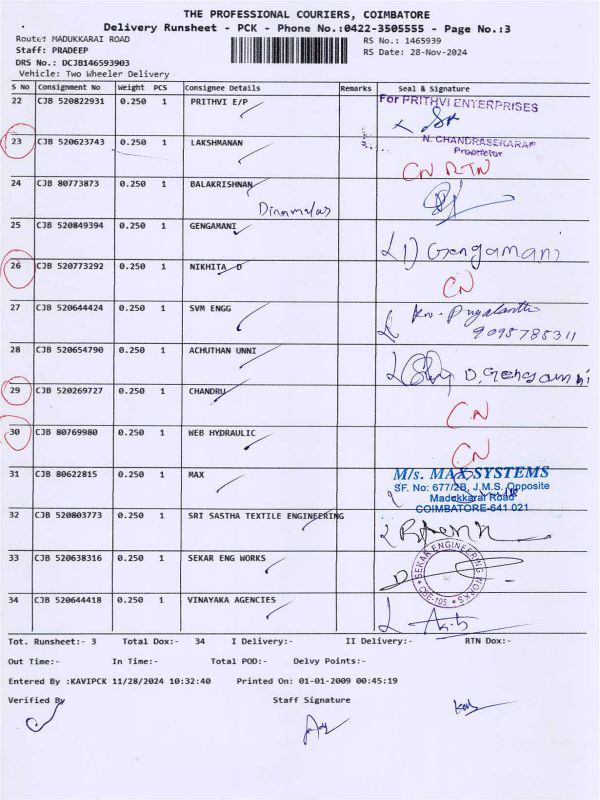 THE PROFESSIONAL COURIERS, COIMBATORE
Delivery Runsheet - PCK - Phone No.:0422-3505555 - Page No.:3
Route: MADUKKARAI ROAD RS No.: 1465939
Staff: PRADEEP RS Date: 28-Nov-2024
DRS No.: DCJB146593903
Vehicle: Two Wheeler Delivery
S No Consignment No Weight PCS Consignee Details Remarks Seal & Signature
22 CJB 520822931 0.250 1 PRITHVI E/P For PRITHVI ENTERPRISES
N. CHANDRASEKARAN
Proprietor
23 CJB 520623743 0.250 1 LAKSHMANAN CN RTN
24 CJB 80773873 0.250 1 BALAKRISHNAN
Dinamalar
25 CJB 520849394 0.250 1 GENGAMANI D Gengamani
26 CJB 520773292 0.250 1 NIKHITA D CN
27 CJB 520644424 0.250 1 SVM ENGG
9095785311
28 CJB 520654790 0.250 1 ACHUTHAN UNNI D. Gengamani
29 CJB 520269727 0.250 1 CHANDRU CN
30 CJB 80769980 0.250 1 WEB HYDRAULIC CN
31 CJB 80622815 0.250 1 MAX M/s. MAX SYSTEMS
SF. No: 677/2B, J.M.S. Opposite
Madukkarai Road
COIMBATORE-641 021
32 CJB 520803773 0.250 1 SRI SASTHA TEXTILE ENGINEERING
33 CJB 520638316 0.250 1 SEKAR ENG WORKS SEKAR ENGINEERING WORKS
CBE-105
34 CJB 520644418 0.250 1 VINAYAKA AGENCIES
Tot. Runsheet:- 3 Total Dox:- 34 I Delivery:- II Delivery:- RTN Dox:-
Out Time:- In Time:- Total POD:- Delvy Points:-
Entered By :KAVIPCK 11/28/2024 10:32:40 Printed On: 01-01-2009 00:45:19
Verified By Staff Signature